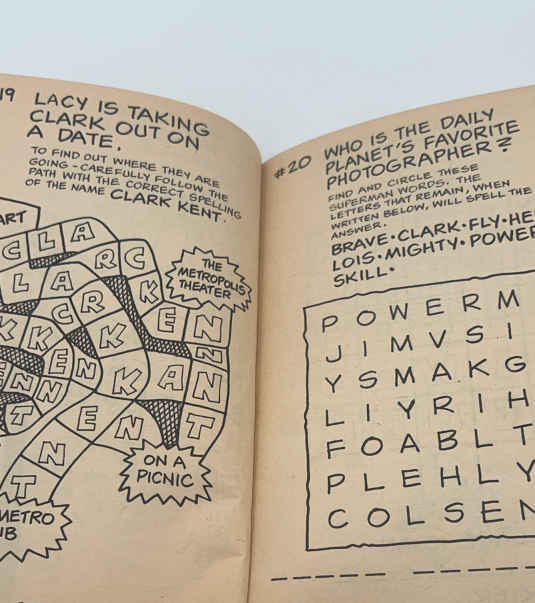 19 LACY IS TAKING
CLARK OUT ON
A DATE.
TO FIND OUT WHERE THEY ARE
GOING - CAREFULLY FOLLOW THE
PATH WITH THE CORRECT SPELLING
OF THE NAME CLARK KENT.
ART
C L A
R C
L A
K
C R
E N
K K
N
E N K A N
N N
T E N T
N
T
THE
METROPOLIS
THEATER
ON A
PICNIC
METRO
#20 WHO IS THE DAILY
PLANET'S FAVORITE
PHOTOGRAPHER?
FIND AND CIRCLE THESE
SUPERMAN WORDS. THE
LETTERS THAT REMAIN, WHEN
WRITTEN BELOW, WILL SPELL THE
ANSWER.
BRAVE • CLARK • FLY • HE
LOIS • MIGHTY • POWER
SKILL •
P O W E R M
J I M V S I
Y S M A K G
L I Y R I H
F O A B L T
P L E H L Y
C O L S E N